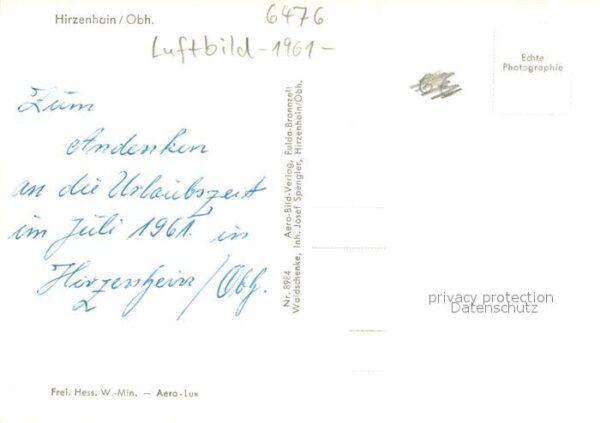 Hirzenhain / Obh.
6476
Luftbild - 1961 -
Echte
Photographie
Zum
Andenken
an die Urlaubszeit
im Juli 1961 in
Hirzenhein / Obh.
Nr. 8984 Aero-Bild-Verlag, Fulda-Bronnzell
Waldschenke, Inh. Josef Spengler, Hirzenhain/Obh.
privacy protection
Datenschutz
Frei. Hess. W.-Min. — Aero-Lux